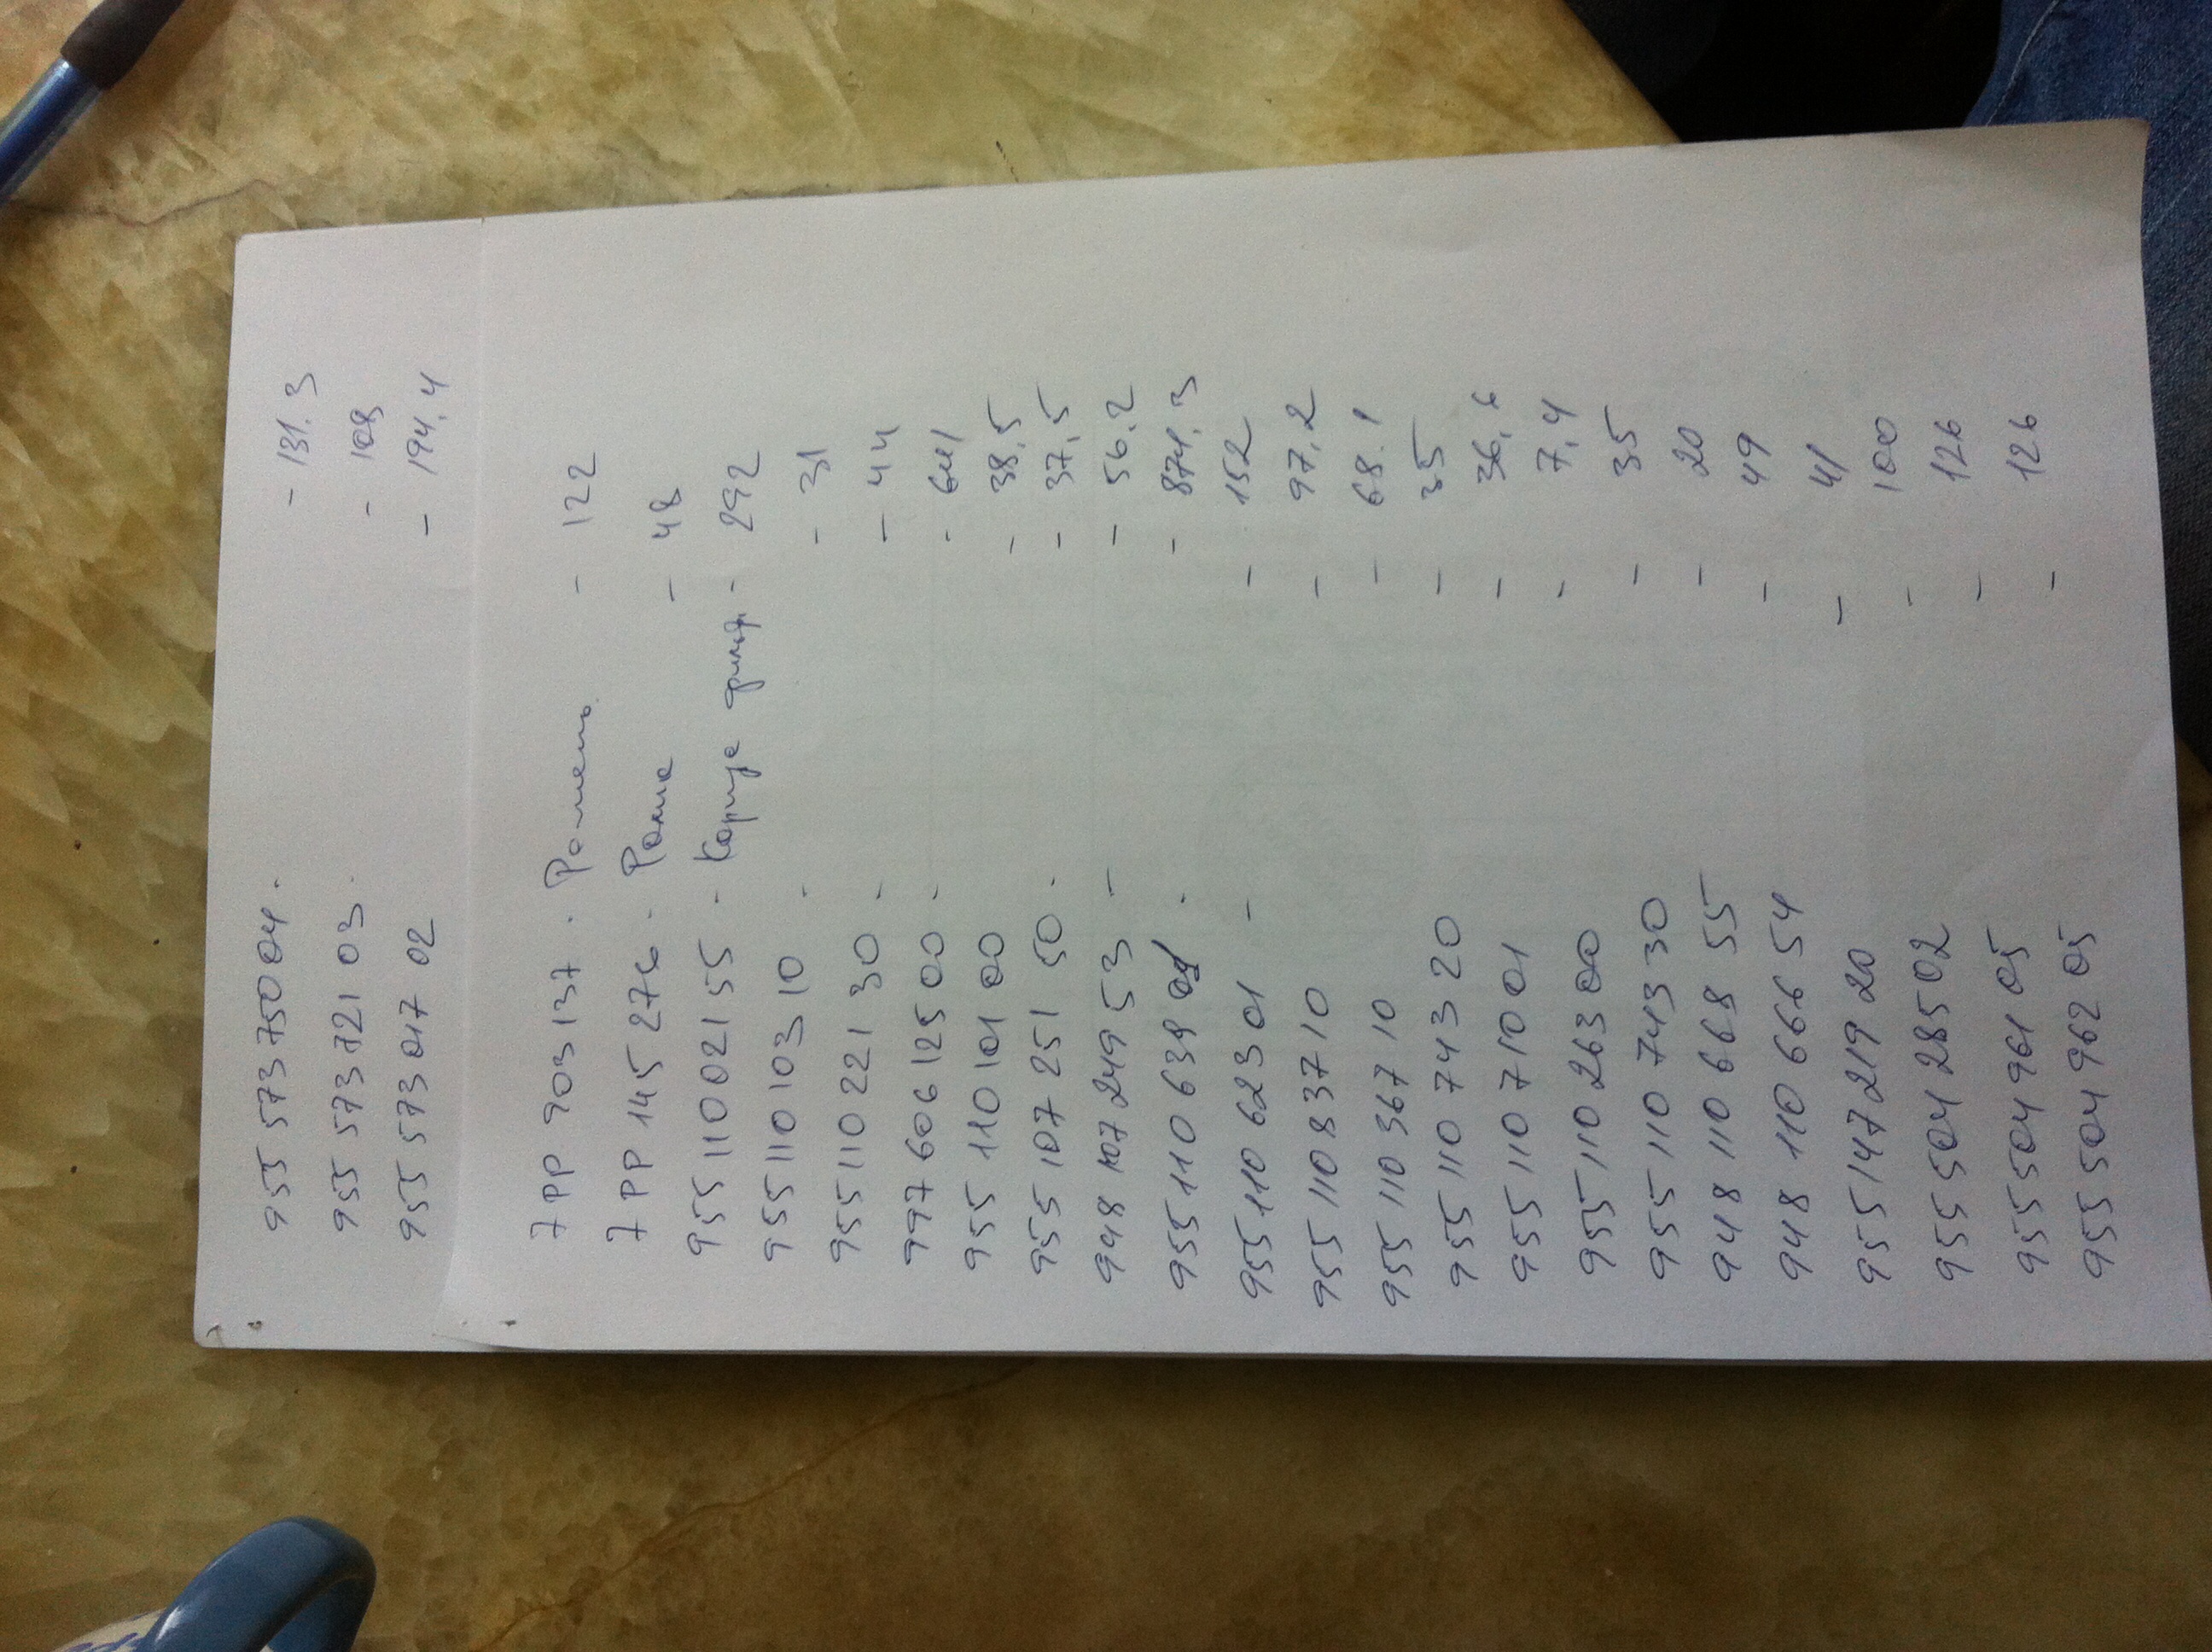 955 573 750 04 . - 131.3
955 573 721 03 . - 108
955 573 017 02 - 194,4
7 PP 903 137 . Ремень - 122
7 PP 145 276 . Ролик - 48
955 110 021 55 . Корпус фильт. - 292
955 110 103 10 . - 31
955 110 221 30 - - 44
997 606 125 00 - - 641
955 110 101 00 - 38,5
955 107 251 50 . - 37,5
948 107 249 53 - - 56,2
955 110 639 . - 874,3
955 110 623 01 - - 152
955 110 837 10 - 97,2
955 110 367 10 - 68.1
955 110 743 20 - 35
955 110 710 01 - 36,6
955 110 263 00 - 7,4
955 110 743 30 - 35
948 110 668 55 - 20
948 110 666 54 - 49
955 147 219 20 - 41
955 504 285 02 - 100
955 504 961 05 - 126
955 504 962 05 - 126